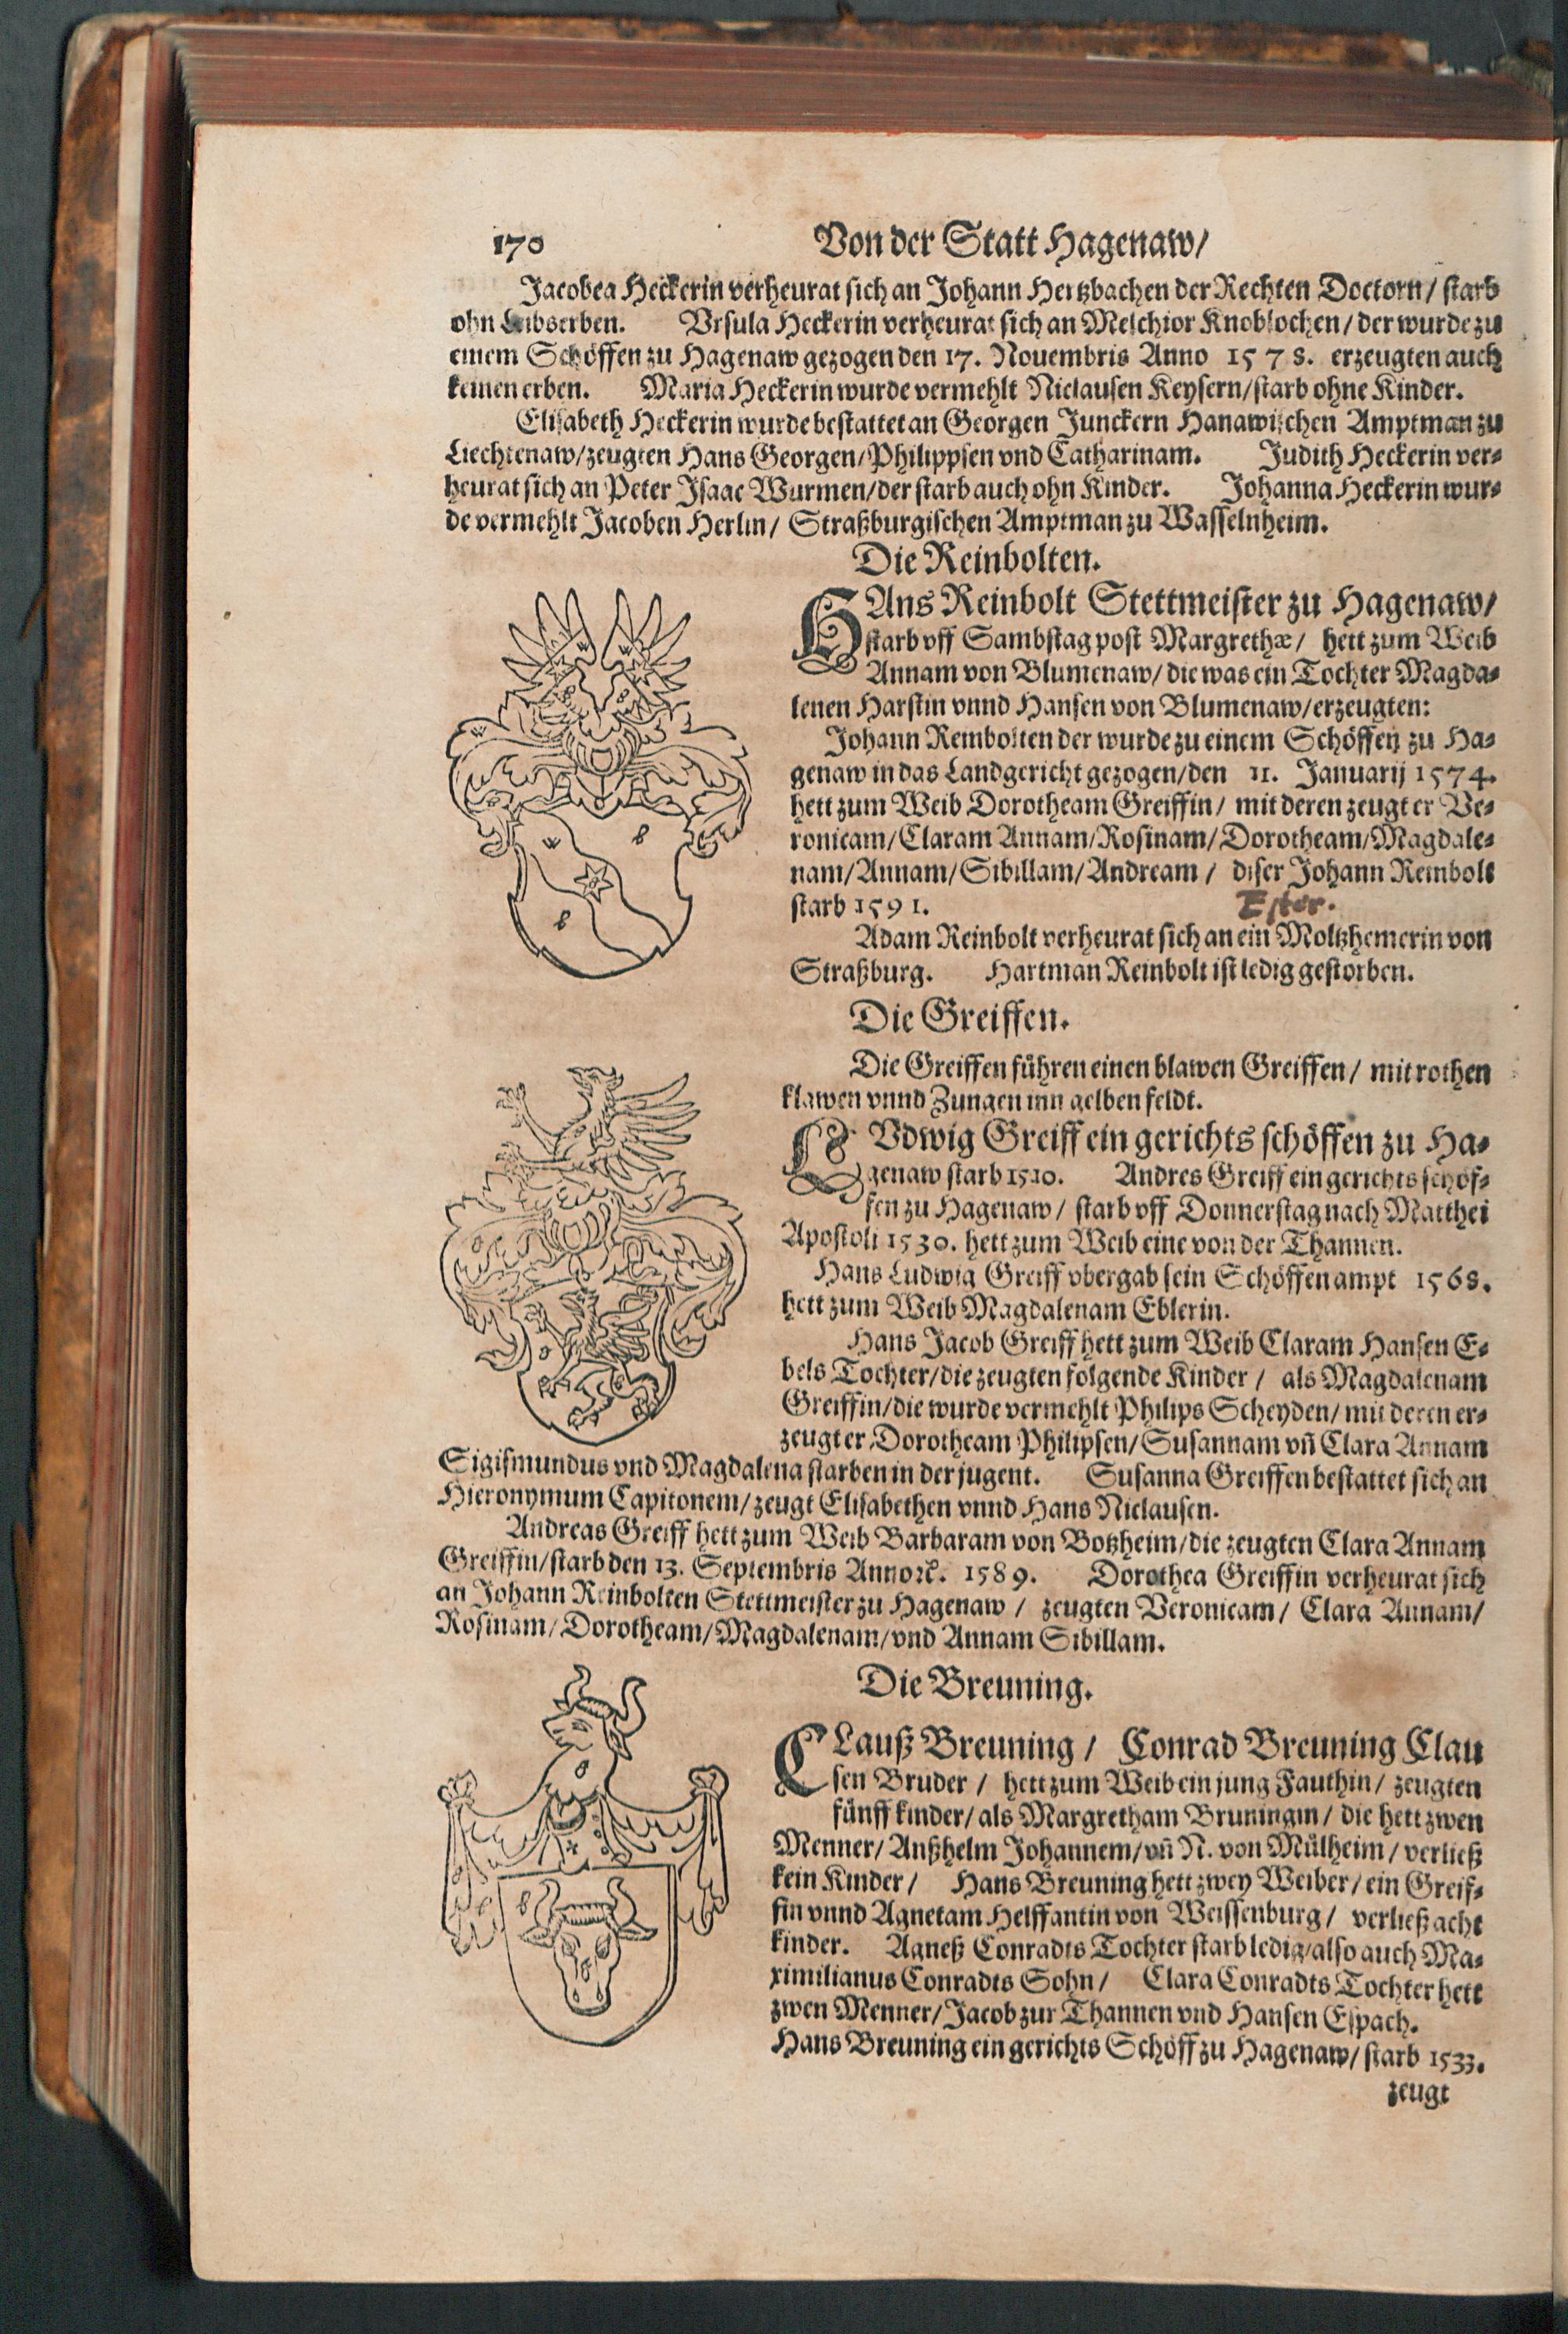 170 Von der Statt Hagenaw/
Jacobea Heckerin verheurat sich an Johann Hertzbachen der Rechten Doctorn / starb
ohn Leibserben. Vrsula Heckerin verheurat sich an Melchior Knoblochen / der wurde zu
einem Schöffen zu Hagenaw gezogen den 17. Nouembris Anno 1578. erzeugten auch
keinen erben. Maria Heckerin wurde vermehlt Niclausen Keysern/starb ohne Kinder.
Elisabeth Heckerin wurde bestattet an Georgen Junckern Hanawischen Amptman zu
Liechtenaw/zeugten Hans Georgen/Philippsen vnd Catharinam. Judith Heckerin ver-
heurat sich an Peter Isaac Wurmen/der starb auch ohn Kinder. Johanna Heckerin wur-
de vermehlt Jacoben Herlin/ Straßburgischen Amptman zu Wasselnheim.
Die Reinbolten.
HAns Reinbolt Stettmeister zu Hagenaw/
starb vff Sambstag post Margrethæ/ hett zum Weib
Annam von Blumenaw/ die was ein Tochter Magda-
lenen Harstin vnnd Hansen von Blumenaw/erzeugten:
Johann Reinbolten der wurde zu einem Schöffen zu Ha-
genaw in das Landgericht gezogen/den 11. Januarij 1574.
hett zum Weib Dorotheam Greiffin/ mit deren zeugt er Ve-
ronicam/Claram Annam/Rosinam/Dorotheam/Magdale-
nam/Annam/Sibillam/Andream / diser Johann Reinbolt
starb 1591. Ester.
Adam Reinbolt verheurat sich an ein Moltzhemerin von
Straßburg. Hartman Reinbolt ist ledig gestorben.
Die Greiffen.
Die Greiffen führen einen blawen Greiffen/ mit rothen
klawen vnnd Zungen inn gelben feldt.
LVdwig Greiff ein gerichts schöffen zu Ha-
genaw starb 1510. Andres Greiff ein gerichts schöf-
fen zu Hagenaw/ starb vff Donnerstag nach Matthei
Apostoli 1530. hett zum Weib eine von der Thannen.
Hans Ludwig Greiff vbergab sein Schöffen ampt 1568.
hett zum Weib Magdalenam Eblerin.
Hans Jacob Greiff hett zum Weib Claram Hansen E-
bels Tochter/die zeugten folgende Kinder / als Magdalenam
Greiffin/die wurde vermehlt Philips Scheyden/ mit deren er-
zeugt er Dorotheam Philipsen/Susannam vñ Clara Annam
Sigismundus vnd Magdalena starben in der jugent. Susanna Greiffen bestattet sich an
Hieronymum Capitonem/zeugt Elisabethen vnnd Hans Niclausen.
Andreas Greiff hett zum Weib Barbaram von Botzheim/die zeugten Clara Annam
Greiffin/starb den 13. Septembris Anno ꝛc. 1589. Dorothea Greiffin verheurat sich
an Johann Reinbolten Stettmeister zu Hagenaw / zeugten Veronicam/ Clara Annam/
Rosinam/Dorotheam/Magdalenam/vnd Annam Sibillam.
Die Breuning.
CLauß Breuning / Conrad Breuning Clau
sen Bruder / hett zum Weib ein jung Fauthin/ zeugten
fünff kinder/als Margretham Bruningin/ die hett zwen
Menner/Anßhelm Johannem/vñ N. von Mülheim / verließ
kein Kinder/ Hans Breuning hett zwey Weiber/ein Greif-
fin vnnd Agnetam Helffantin von Weissenburg/ verließ acht
kinder. Agneß Conradts Tochter starb ledig/also auch Ma-
ximilianus Conradts Sohn / Clara Conradts Tochter hett
zwen Menner/Jacob zur Thannen vnd Hansen Espach.
Hans Breuning ein gerichts Schöff zu Hagenaw/starb 1533.
zeugt